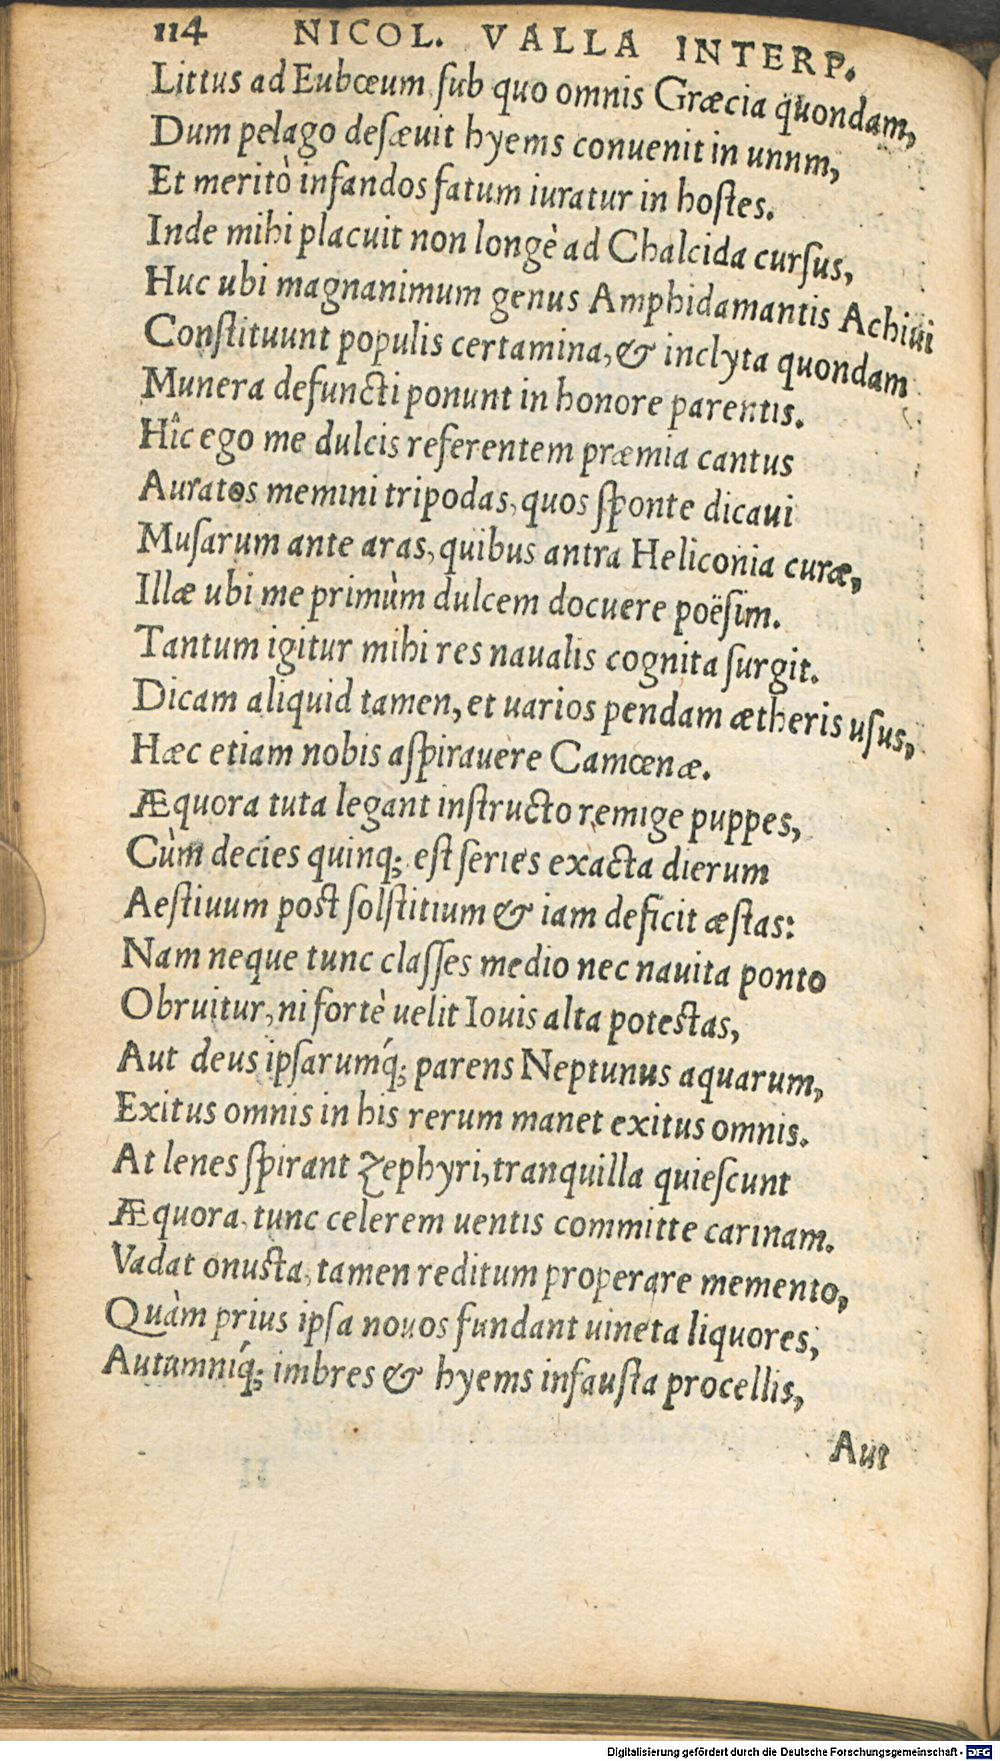 114 NICOL. VALLA INTERP.
Littus ad Eubœum sub quo omnis Græcia quondam,
Dum pelago desæuit hyems conuenit in unnm,
Et meritò infandos fatum iuratur in hostes.
Inde mihi placuit non longè ad Chalcida cursus,
Huc ubi magnanimum genus Amphidamantis Achiui
Constituunt populis certamina, & inclyta quondam
Munera defuncti ponunt in honore parentis.
Hîc ego me dulcis referentem præmia cantus
Auratos memini tripodas, quos sponte dicaui
Musarum ante aras, quibus antra Heliconia curæ,
Illæ ubi me primùm dulcem docuere poësim.
Tantum igitur mihi res naualis cognita surgit.
Dicam aliquid tamen, et uarios pendam ætheris usus,
Hæc etiam nobis aspirauere Camœnæ.
Æquora tuta legant instructo remige puppes,
Cùm decies quinq; est series exacta dierum
Aestiuum post solstitium & iam deficit æstas:
Nam neque tunc classes medio nec nauita ponto
Obruitur, ni fortè uelit Iouis alta potestas,
Aut deus ipsarumq́; parens Neptunus aquarum,
Exitus omnis in his rerum manet exitus omnis.
At lenes spirant Zephyri, tranquilla quiescunt
Æquora, tunc celerem uentis committe carinam.
Vadat onusta, tamen reditum properare memento,
Quàm prius ipsa nouos fundant uineta liquores,
Autumniq́; imbres & hyems infausta procellis,
Aut
Digitalisierung gefördert durch die Deutsche Forschungsgemeinschaft - DFG